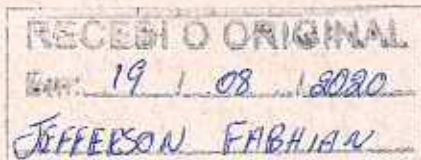 RECEBI O ORIGINAL
Em: 19 / 08 / 2020
JEFFERSON FABHIAN